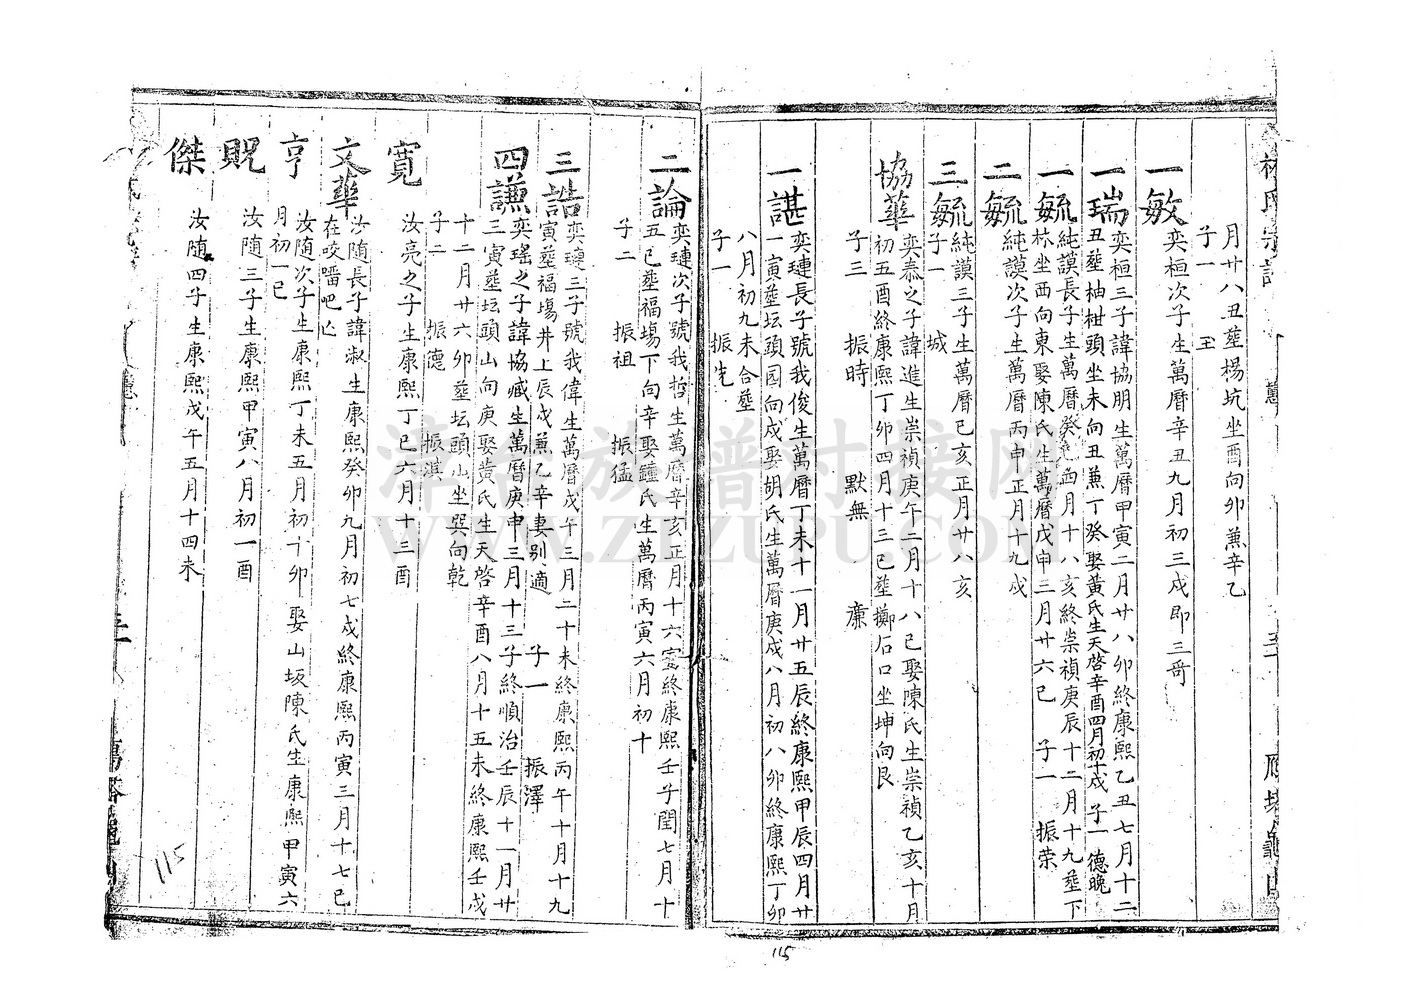 林氏宗譜
月廿八丑葬楊坑坐酉向卯兼辛乙
子一 玉
一敏
奕桓次子生萬曆辛丑九月初三戌即三哥
一瑞
奕桓三子諱協朋生萬曆甲寅二月廿八卯終康熙乙丑七月十二
丑葬柚柑頭坐未向丑兼丁癸娶黃氏生天啓辛酉四月初十戌 子一 德晚
一毓
純謨長子生萬曆癸 酉月十八亥終崇禎庚辰十二月十九葬下
林坐西向東娶陳氏生萬曆戊申三月廿六巳 子一 振荣
二毓
純謨次子生萬曆丙申正月十九戌
三毓
純謨三子生萬曆己亥正月廿八亥
子一 城
協華
奕泰之子諱進生崇禎庚午二月十八巳娶陳氏生崇禎乙亥十月
初五酉終康熙丁卯四月十三巳葬擲石口坐坤向艮
子三 振時 默無 廉
一諶
奕璉長子號我俊生萬曆丁未十一月廿五辰終康熙甲辰四月廿
一寅葬坛頭园向戌娶胡氏生萬曆庚戌八月初八卯終康熙丁卯
八月初九未合葬
子一 振先
二論
奕璉次子號我哲生萬曆辛亥正月十六寅終康熙壬子閏七月十
五巳葬福塲丁向辛娶鍾氏生萬曆丙寅六月初十
子二 振祖 振猛
三誥
奕璉三子號我偉生萬曆戊午三月二十未終康熙丙午十月十九
寅葬福塲井上辰戌兼乙辛妻别適 子一 振澤
四謙
奕瑤之子諱協臧生萬曆庚申三月十三子終順治壬辰十一月廿
三寅葬坛頭山向庚娶黃氏生天啓辛酉八月十五未終康熙壬戌
十二月廿六卯葬坛頭山坐巽向乾
子二 振德 振淇
寛
汝亮之子生康熙丁巳六月十三酉
文華
汝随長子諱淑生康熙癸卯九月初七戌終康熙丙寅三月十七巳
在咬𠺕吧亡
亨
汝随次子生康熙丁未五月初十卯娶山坂陳氏生康熙甲寅六
月初一巳
貺
汝随三子生康熙甲寅八月初一酉
傑
汝随四子生康熙戊午五月十四未
115
115
津台族谱对接网
WWW.ZTZUPU.COM